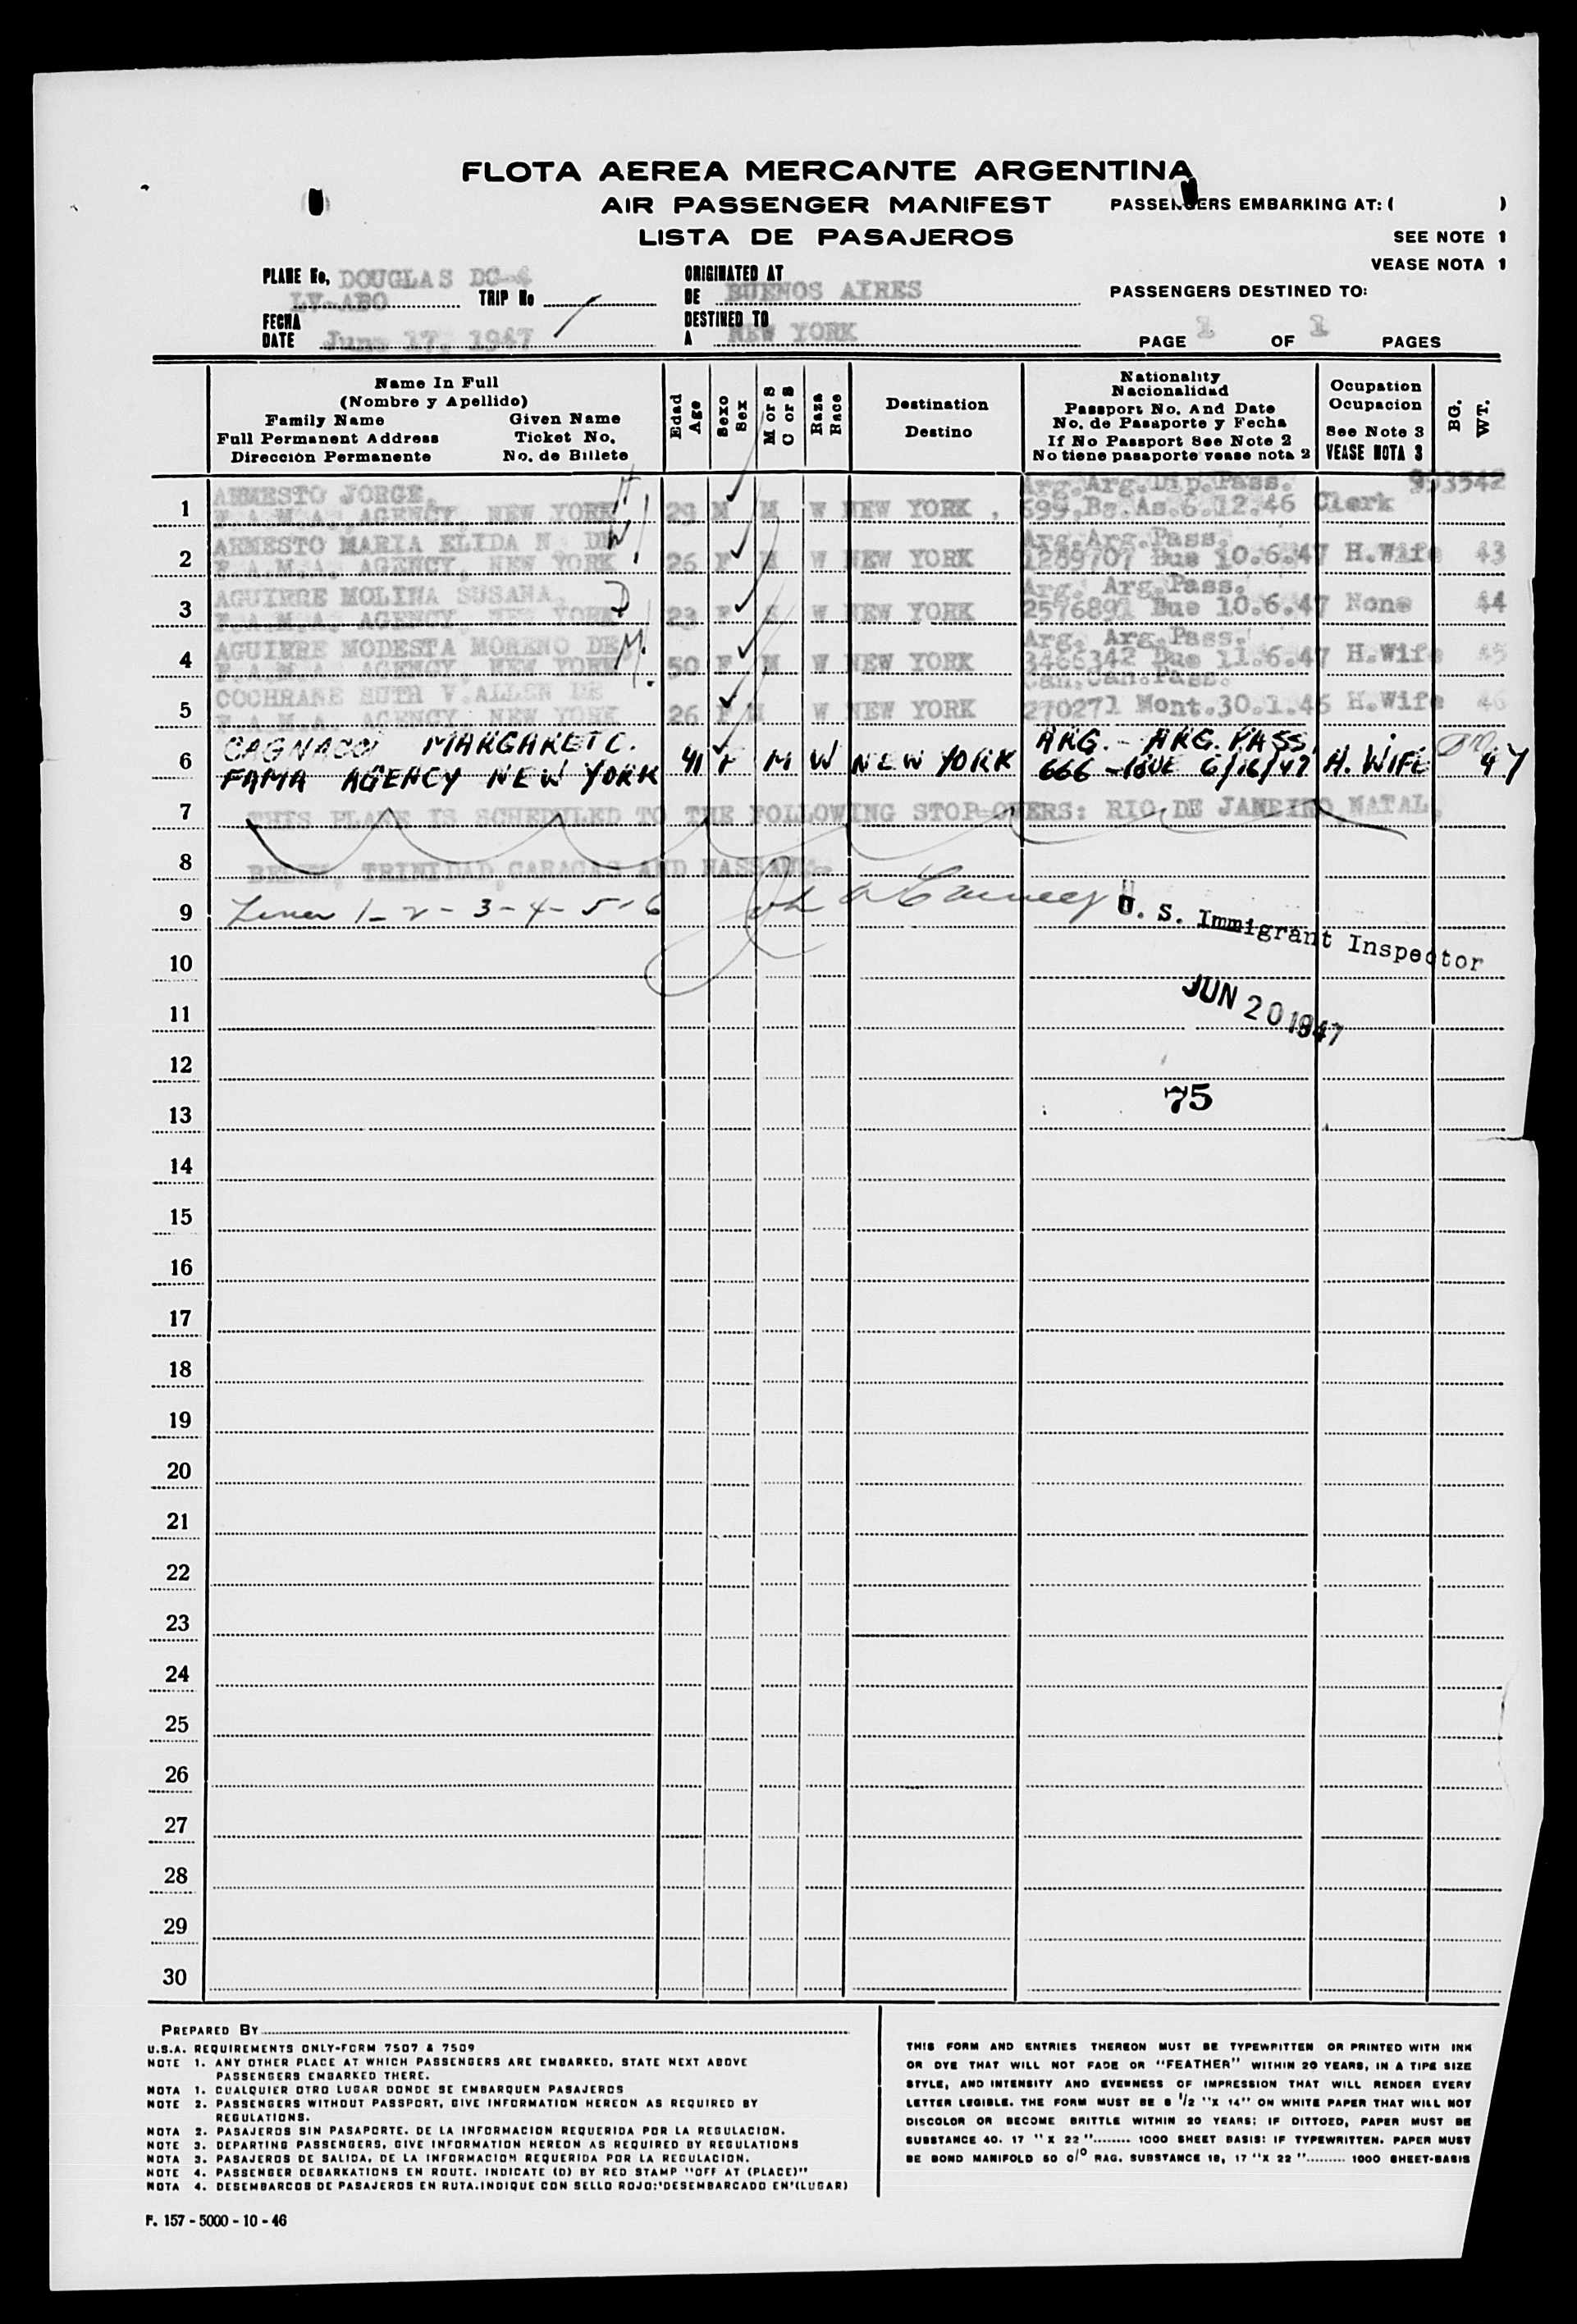 FLOTA AEREA MERCANTE ARGENTINA
AIR PASSENGER MANIFEST
LISTA DE PASAJEROS
PASSENGERS EMBARKING AT: ( )
SEE NOTE 1
VEASE NOTA 1
PLANE No, DOUGLAS DC-4
LV-ABO TRIP No
FECHA
DATE June 17, 1947
ORIGINATED AT
DE BUENOS AIRES
DESTINED TO
A NEW YORK
PASSENGERS DESTINED TO:
PAGE 1 OF 1 PAGES
Name In Full
(Nombre y Apellido)
Family Name Given Name
Full Permanent Address Ticket No.
Dirección Permanente No. de Billete
Edad
Age
Sexo
Sex
M or S
C or S
Raza
Race
Destination
Destino
Nationality
Nacionalidad
Passport No. And Date
No. de Pasaporte y Fecha
If No Passport See Note 2
No tiene pasaporte vease nota 2
Ocupation
Ocupacion
See Note 3
VEASE NOTA 3
BG.
WT.
ARMESTO JORGE, H Arg.Arg.Dip.Pass. 953542
1 F.A.M.A., AGENCY, NEW YORK 29 M M W NEW YORK , 599.Bs.As.6.12.46 Clerk
ARMESTO MARIA ELIDA N. DE W Arg.Arg.Pass.
2 F.A.M.A. AGENCY, NEW YORK 26 F M W NEW YORK 1289707 Bue 10.6.47 H.Wife 43
AGUIRRE MOLINA SUSANA, D Arg. Arg.Pass.
3 F.A.M.A. AGENCY, NEW YORK 23 F S W NEW YORK 2576891 Bue 10.6.47 None 44
AGUIRRE MODESTA MORENO DE M. Arg. Arg.Pass.
4 F.A.M.A. AGENCY, NEW YORK 50 F M W NEW YORK 3466342 Bue 11.6.47 H.Wife 45
COCHRANE RUTH V.ALLEN DE Can.Can.Pass.
5 F.A.M.A. AGENCY, NEW YORK 26 F M W NEW YORK 270271 Mont.30.1.46 H.Wife 46
CAGNACCI MARGARET C. ARG. - ARG. PASS.
6 FAMA AGENCY NEW YORK 41 F M W NEW YORK 666 - BUE 6/16/47 H. WIFE 47
7 THIS PLANE IS SCHEDULED TO THE FOLLOWING STOP-OVERS: RIO DE JANEIRO, NATAL,
8 BELEM, TRINIDAD, CARACAS AND NASSAU.-
9 Lines 1-2-3-4-5-6
U. S. Immigrant Inspector
10
JUN 20 1947
11
12
75
13
14
15
16
17
18
19
20
21
22
23
24
25
26
27
28
29
30
PREPARED BY
U.S.A. REQUIREMENTS ONLY-FORM 7507 & 7509
NOTE 1. ANY OTHER PLACE AT WHICH PASSENGERS ARE EMBARKED, STATE NEXT ABOVE
PASSENGERS EMBARKED THERE.
NOTA 1. CUALQUIER OTRO LUGAR DONDE SE EMBARQUEN PASAJEROS
NOTE 2. PASSENGERS WITHOUT PASSPORT, GIVE INFORMATION HEREON AS REQUIRED BY
REGULATIONS.
NOTA 2. PASAJEROS SIN PASAPORTE. DE LA INFORMACION REQUERIDA POR LA REGULACION.
NOTE 3. DEPARTING PASSENGERS, GIVE INFORMATION HEREON AS REQUIRED BY REGULATIONS
NOTA 3. PASAJEROS DE SALIDA, DE LA INFORMACION REQUERIDA POR LA REGULACION.
NOTE 4. PASSENGER DEBARKATIONS EN ROUTE. INDICATE (D) BY RED STAMP "OFF AT (PLACE)"
NOTA 4. DESEMBARCOS DE PASAJEROS EN RUTA.INDIQUE CON SELLO ROJO:'DESEMBARCADO EN'(LUGAR)
THIS FORM AND ENTRIES THEREON MUST BE TYPEWRITTEN OR PRINTED WITH INK
OR DYE THAT WILL NOT FADE OR "FEATHER" WITHIN 20 YEARS, IN A TIPE SIZE
STYLE, AND INTENSITY AND EVENNESS OF IMPRESSION THAT WILL RENDER EVERY
LETTER LEGIBLE. THE FORM MUST BE 8 1/2 "X 14" ON WHITE PAPER THAT WILL NOT
DISCOLOR OR BECOME BRITTLE WITHIN 20 YEARS: IF DITTOED, PAPER MUST BE
SUBSTANCE 40. 17 " X 22 "......... 1000 SHEET BASIS: IF TYPEWRITTEN. PAPER MUST
BE BOND MANIFOLD 50 0/0 RAG. SUBSTANCE 18, 17 "X 22 "......... 1000 SHEET-BASIS
F. 157 - 5000 - 10 - 46